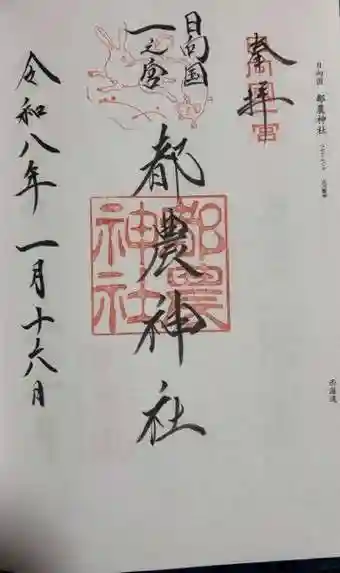 日向国 都農神社
西海道
奉拝
日向国
一之宮
都農神社
都農神社
令和八年一月十六日